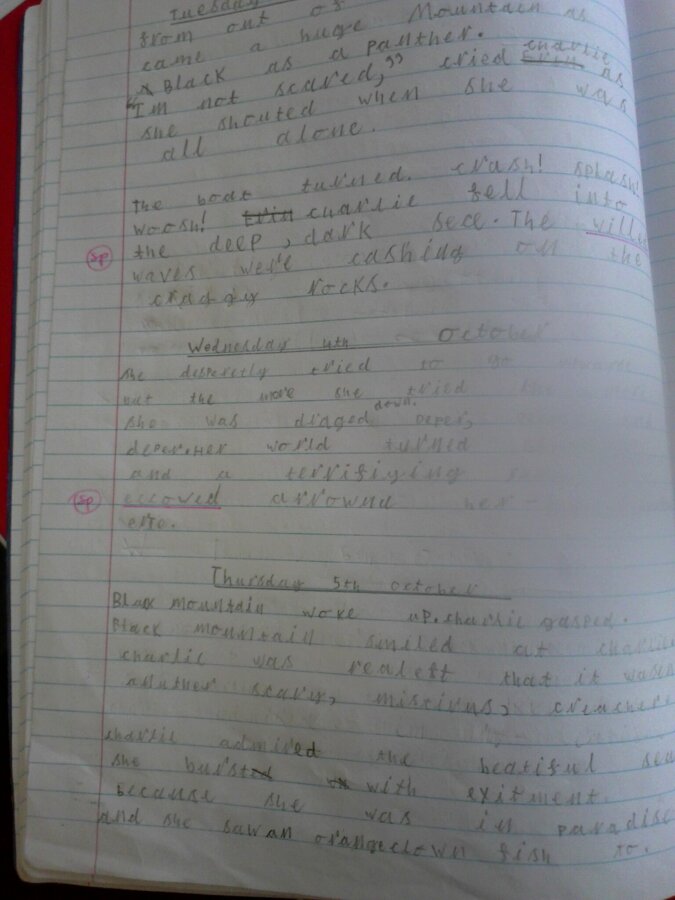 Tuesday
from out of
came a huge Mountain as
Black as a panther.
"I'm not scared," cried charlie as
she shouted when she was
all alone.
The boat turned. crash! splash!
Woosh! Erin charlie fell into
the deep, dark sece. The
sp
waves were cashing on the
craggy rocks.
Wednesday 4th October
She desperetly tried to go
but the more she tried the
she was draged down. Deper,
deper. Her world turned
and a terrifiying
sp
eccowed arrownd her
erie.
Thursday 5th october
Black mountain woke up. charlie gasped.
Black mountain smiled at charlie
charlie was realeft that it wasn
anuther scary, miscirus, creacher
charlie admired the beatiful sea
she burst with exitment
because she was in paradise
and she saw an orange clown fish to.